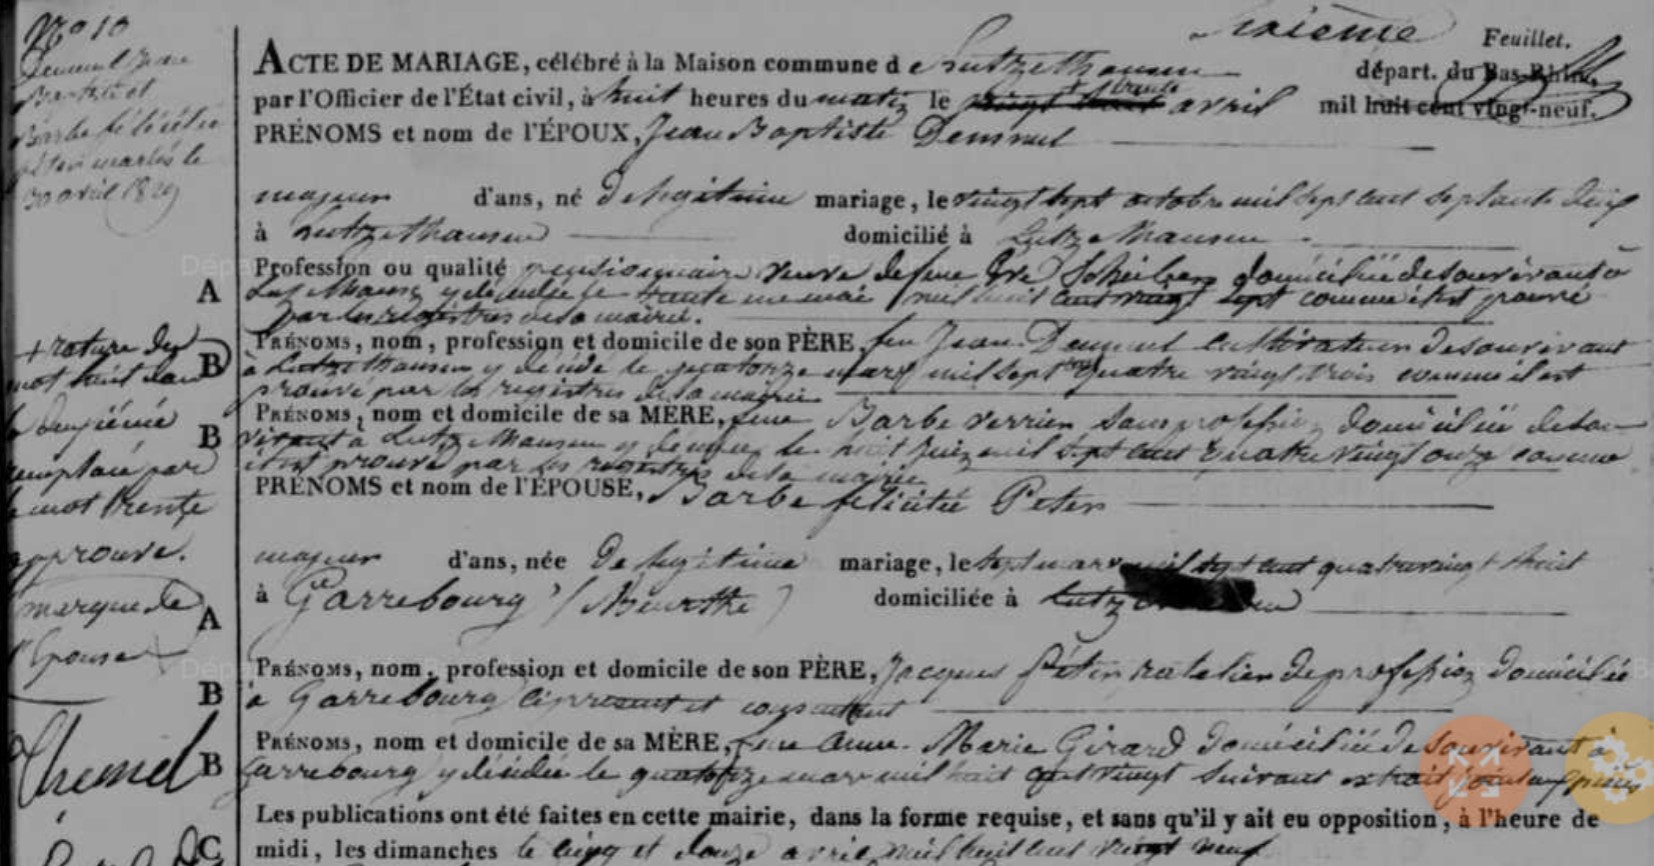 Sixième Feuillet.
N° 10
Demmel Jean
Baptiste et
Barbe félicitée
péter mariés le
30 avril 1829
ACTE DE MARIAGE, célébré à la Maison commune d e Lutzelhausen départ. du Bas-Rhin,
par l'Officier de l'État civil, à huit heures du matin le vingt huit trente avril mil huit cent vingt-neuf.
PRÉNOMS et nom de l'ÉPOUX, Jean Baptiste Demmel
majeur d'ans, né De légitime mariage, le vingt sept octobre mil sept cent septante
à Lutzelhausen domicilié à Lutzelhausen
A Profession ou qualité pensionnaire domiciliée de son vivant à
y décédée le trente mai mil huit cent vingt sept comme il est prouvé
par les registres de la mairie.
B PRÉNOMS, nom, profession et domicile de son PÈRE, feu Jean Demmel cultivateur de son vivant
à Lutzelhausen y décédé le quatorze mars mil sept cent quatre vingt trois comme il est
prouvé par les registres de la mairie
B PRÉNOMS, nom et domicile de sa MÈRE, feue Barbe verrier sans profession domiciliée de son
vivant à Lutzelhausen y décédée le huit mil sept cent quatre vingt onze comme
il est prouvé par les registres de la mairie
PRÉNOMS et nom de l'ÉPOUSE, Barbe félicitée Peter
majeur d'ans, née De légitime mariage, le sept mars mil sept cent quatre vingt huit
à Garrebourg (Meurthe) domiciliée à
A
B PRÉNOMS, nom, profession et domicile de son PÈRE, Jacques Péter de profession domicilié
à Garrebourg ci présent et consentant
B PRÉNOMS, nom et domicile de sa MÈRE, feue Anne Marie Girard domiciliée de son vivant à
Garrebourg y décédée le quatorze mars mil huit cent vingt suivant extrait
Les publications ont été faites en cette mairie, dans la forme requise, et sans qu'il y ait eu opposition, à l'heure de
C midi, les dimanches le cinq et douze avril mil huit cent vingt neuf
+ rature du
mot huit dans
la deuxième
remplacé par
le mot trente
approuvé.
marque de
l'épouse +